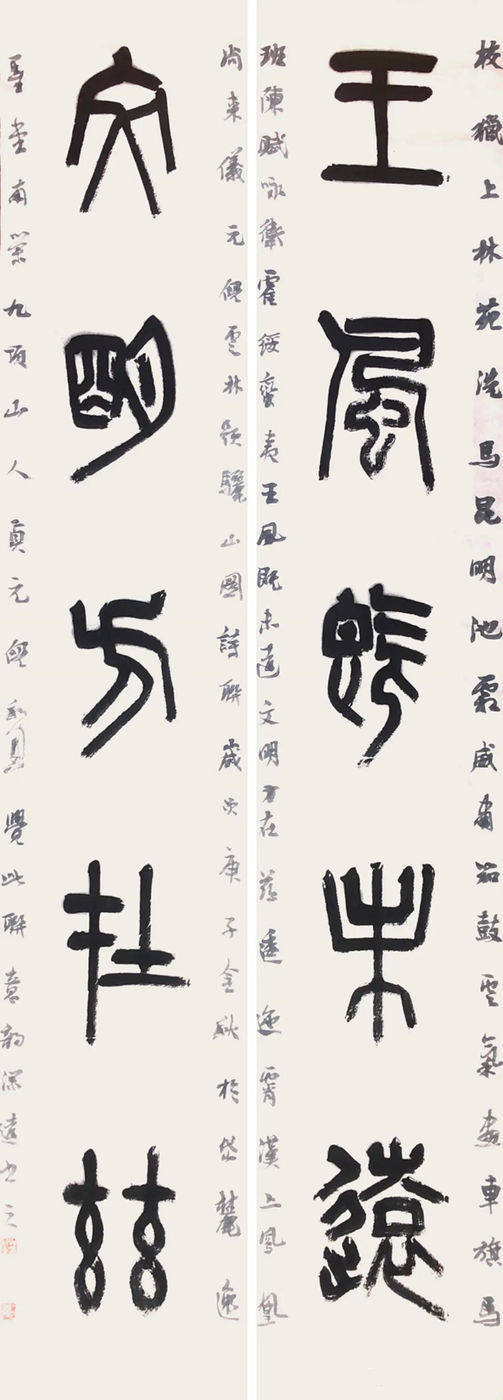 王風既未遠
文明方在茲
校獵上林苑洗馬昆明池霜威肅笳鼓雲氣畫車旗馬
班陳賦咏衛霍綏蠻夷王風既未遠文明方在逶迤霄漢上鳳凰
尚來儀元倪雲林題驪山圖詩聯歲次庚子金秋於岱麓逸
墨堂南窗九頂山人元倪覺此聯意韵深遠書之